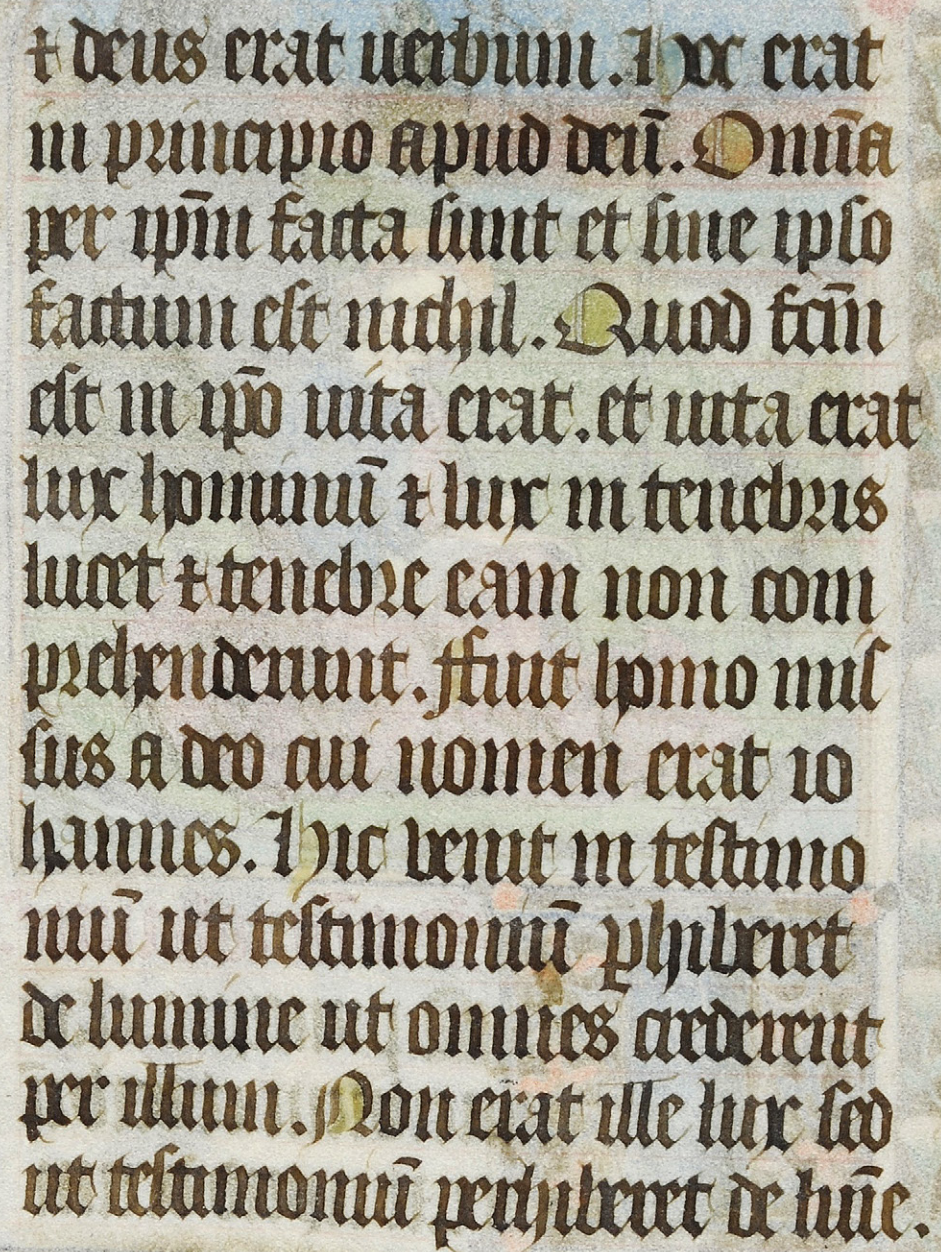 ⁊ deus erat uerbum. Hoc erat
in principio apud deū. Omnīa
per ip̄m facta sunt et sine ipso
factum est nichil. Quod fc̄m
est in ip̄o uita erat. et uita erat
lux hominū ⁊ lux in tenebris
lucet ⁊ tenebre eam non com
prehenderunt. Ffuit homo mis
sus a deo cui nomen erat io
hannes. Hic venit in testimo
niū ut testimoniū ꝑhiberet
de lumine ut omnes crederent
per illum. Non erat ille lux sed
ut testimoniū perhiberet de lūīe.